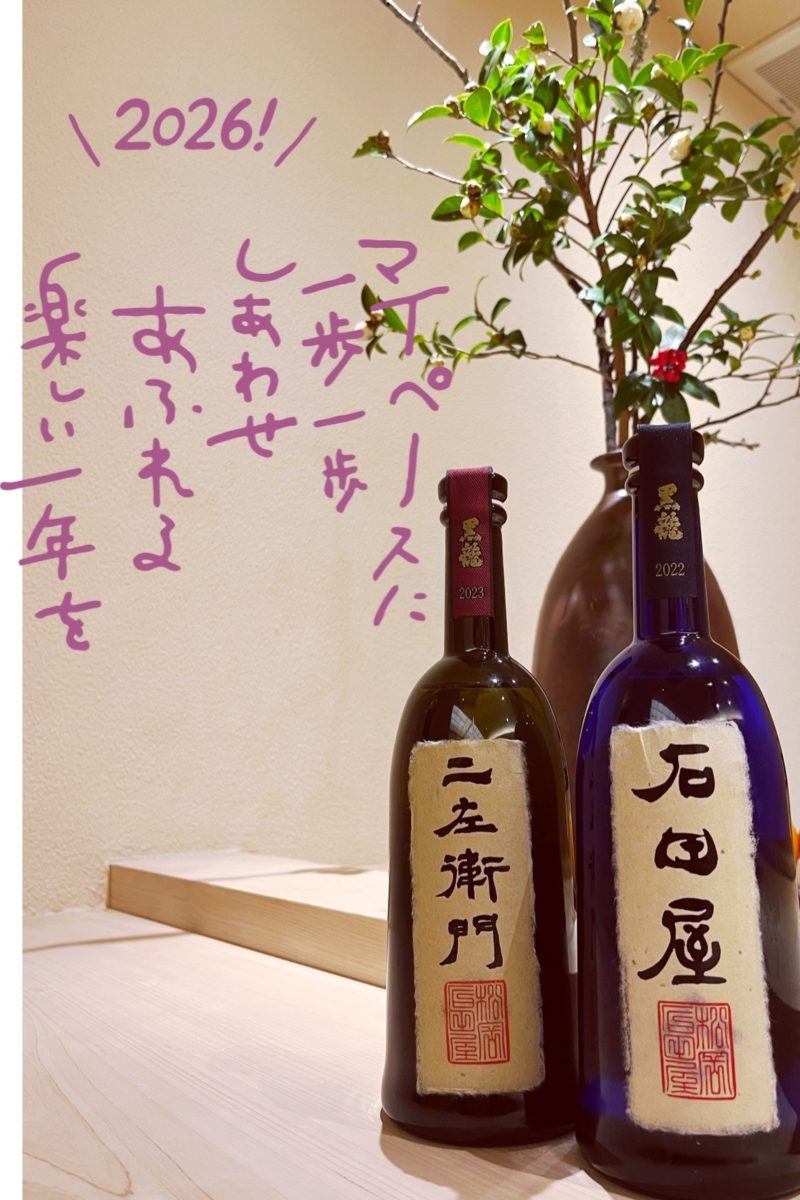 \ 2026! /
マイペースに
一歩一歩
しあわせ
あふれる
楽しい一年を
黒龍
2023
二左衛門
松岡
長屋
黒龍
2022
石田屋
松岡
長屋